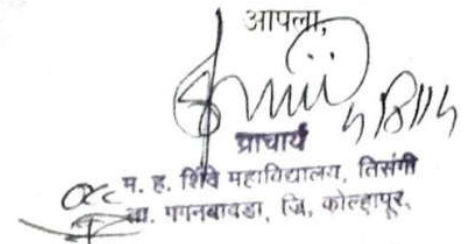 आपला,
प्राचार्य
म. ह. शिंदे महाविद्यालय, तिसंगी
ता. गगनबावडा, जि. कोल्हापूर.